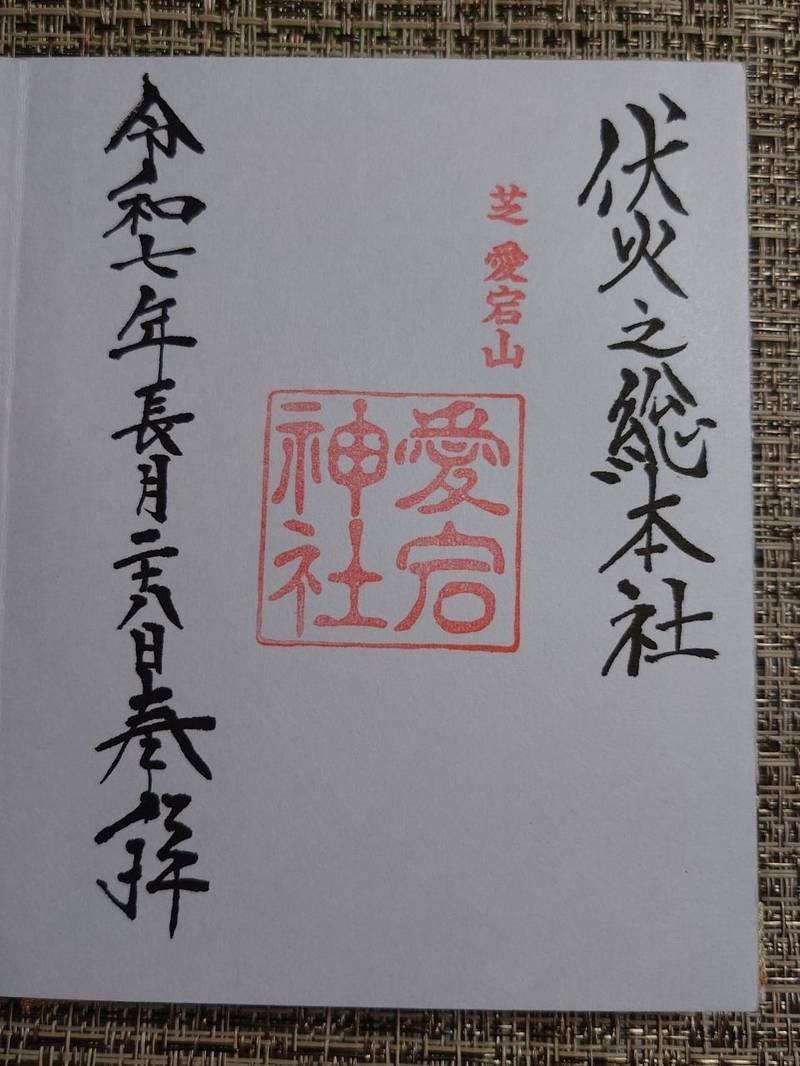 伏火之総本社
芝 愛宕山
愛宕
神社
令和七年長月二十八日奉拝